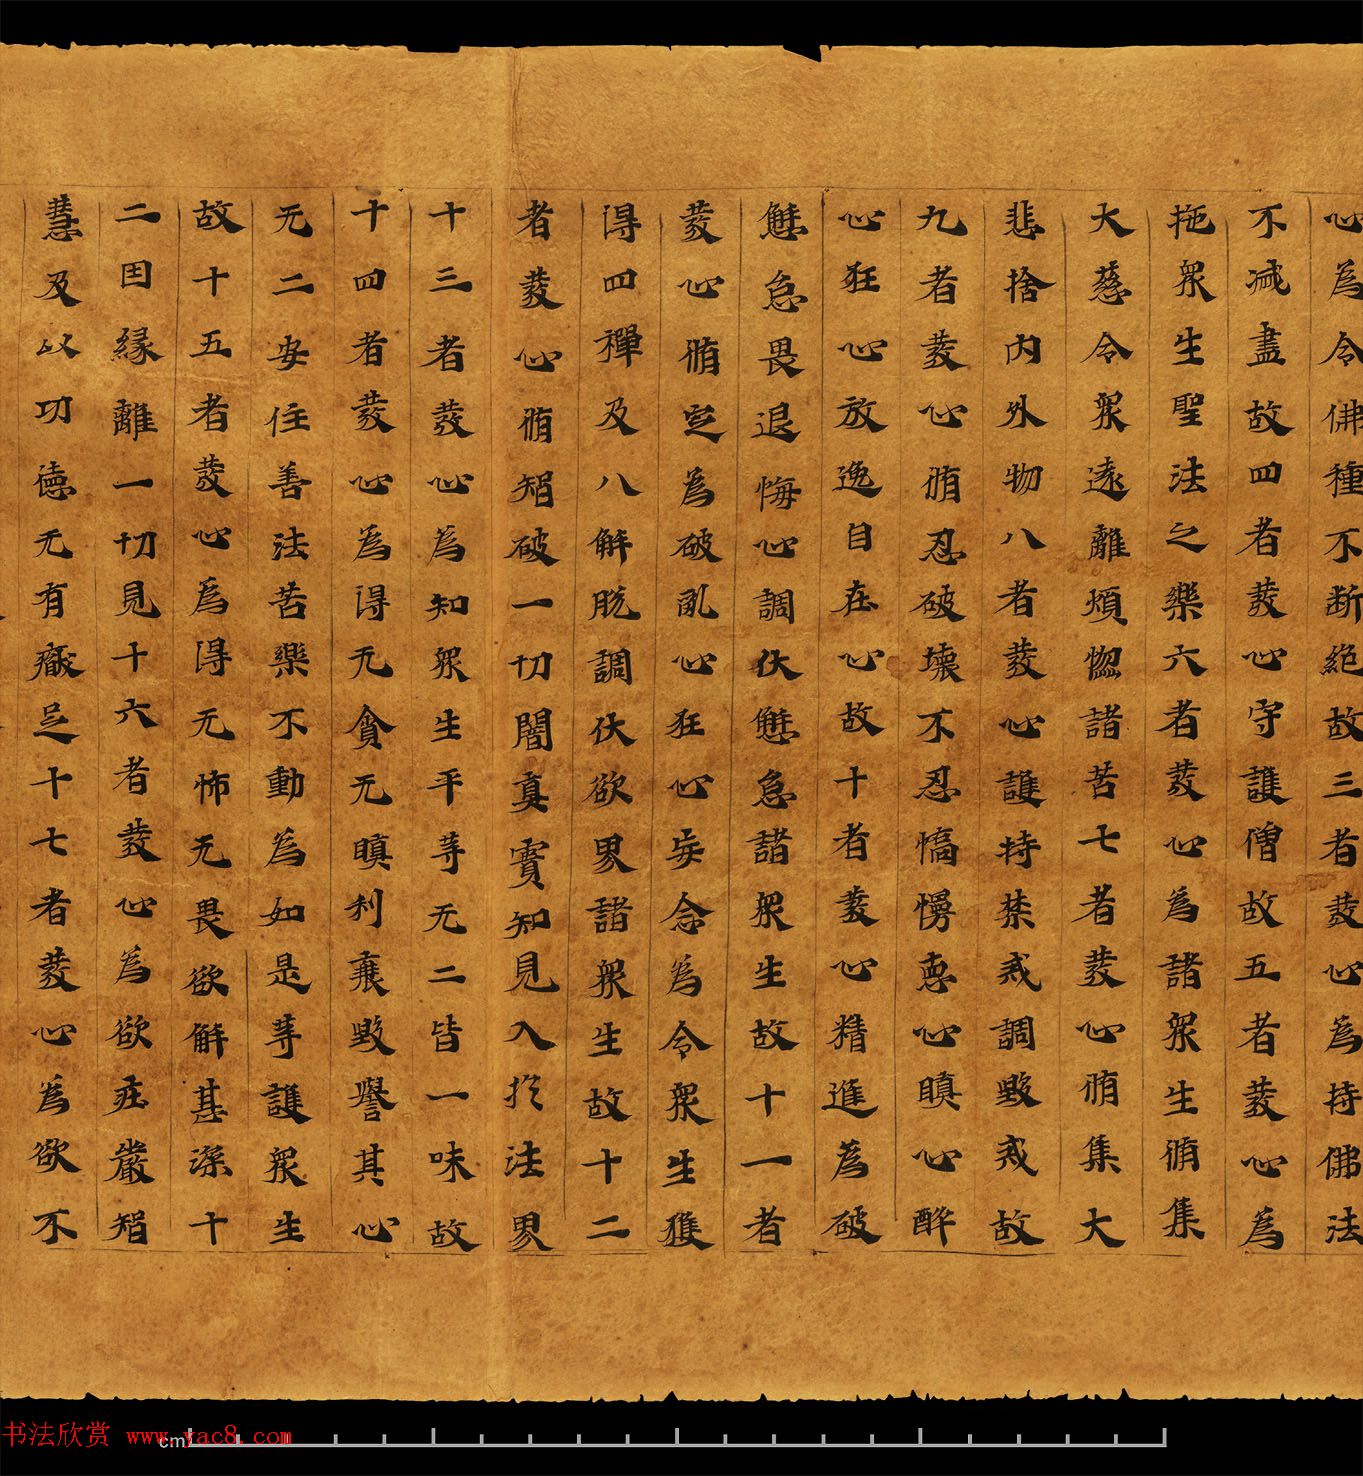 心為令佛種不断絶故三者發心為持佛法
不滅盡故四者發心守護僧故五者發心為
拖衆生聖法之樂六者發心為諸衆生脩集
大慈令衆遠離煩惱諸苦七者發心脩集大
悲捨内外物八者發心護持禁戒調毀戒故
九者發心脩忍破壞不忍憍慢恚心瞋心醉
心狂心放逸自在心故十者發心精進為破
懈怠畏退悔心調伏懈怠諸衆生故十一者
發心脩定為破亂心狂心妄念為令衆生獲
得四禪及八解脱調伏欲界諸衆生故十二
者發心脩智破一切闇真實知見入於法界
十三者發心為知衆生平等无二皆一味故
十四者發心為得无貪无瞋利衰毀譽其心
无二安住善法苦樂不動為如是等護衆生
故十五者發心為得无怖无畏欲解甚深十
二因緣離一切見十六者發心為欲莊嚴智
慧及以功德无有癡足十七者發心為欲不
cm
书法欣赏 www.yac8.com